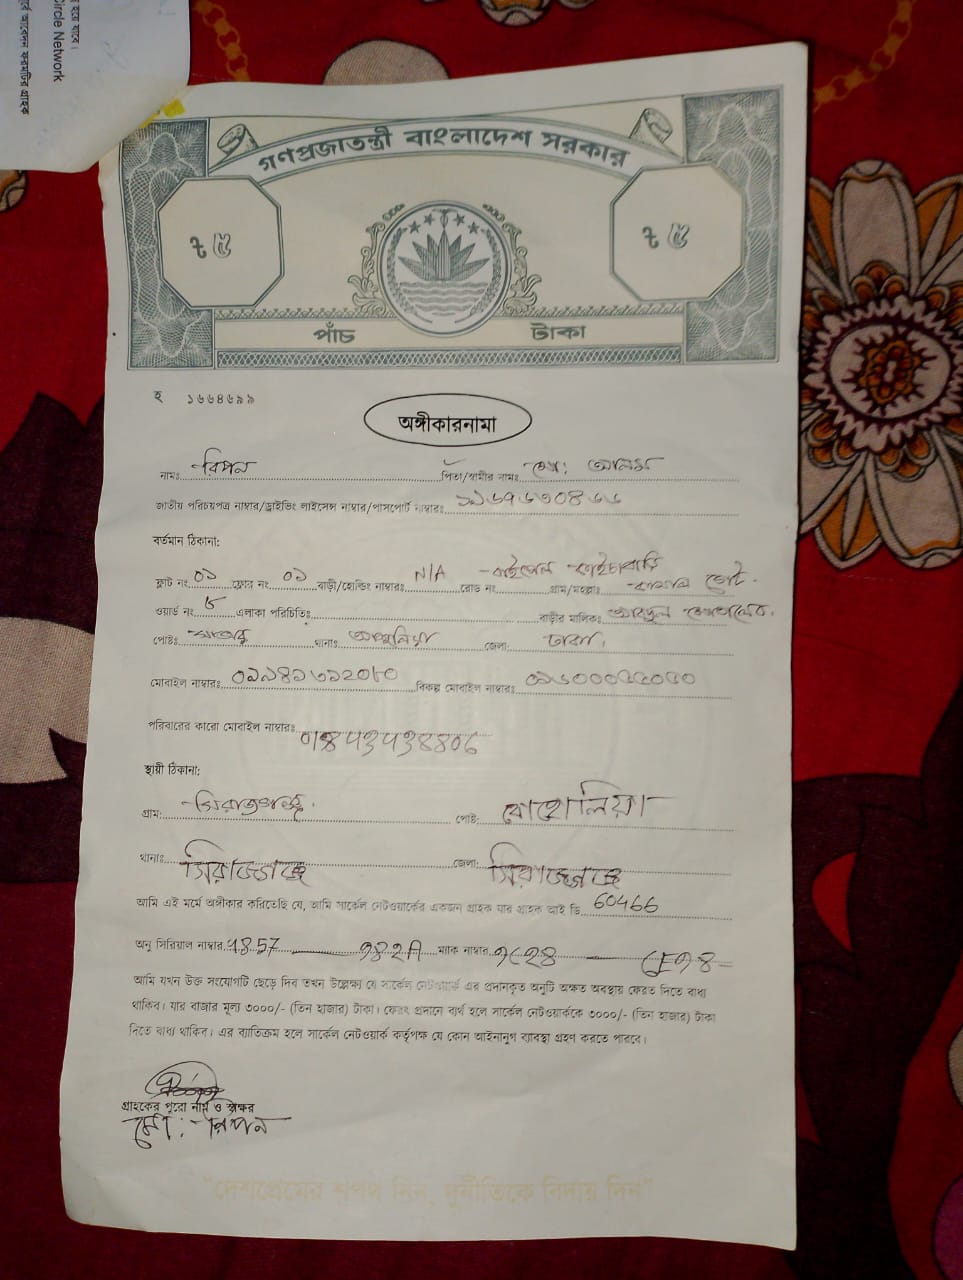 হয়ে যাবে।
Circle Network
র্বে আবেদন ফরমটির গ্রাহক
গণপ্রজাতন্ত্রী বাংলাদেশ সরকার
৳ ৫
৳ ৫
পাঁচ টাকা
হ ১৬৬৪৬৯৯
অঙ্গীকারনামা
নামঃ রিপন পিতা/স্বামীর নামঃ মো: আলম
জাতীয় পরিচয়পত্র নাম্বার/ড্রাইভিং লাইসেন্স নাম্বার/পাসপোর্ট নাম্বারঃ
বর্তমান ঠিকানা:
ফ্লাট নং ০১ ফ্লোর নং ০১ বাড়ী/হোল্ডিং নাম্বারঃ N/A রোড নং গ্রাম/মহল্লাঃ
ওয়ার্ড নং ৮ এলাকা পরিচিতিঃ বাড়ীর মালিকঃ আবদুল
পোষ্টঃ থানাঃ আশুলিয়া জেলা: ঢাকা
মোবাইল নাম্বারঃ বিকল্প মোবাইল নাম্বারঃ
পরিবারের কারো মোবাইল নাম্বারঃ
স্থায়ী ঠিকানা:
গ্রাম: সিরাজগঞ্জ পোষ্ট:
থানাঃ সিরাজগঞ্জ জেলা: সিরাজগঞ্জ
আমি এই মর্মে অঙ্গীকার করিতেছি যে, আমি সার্কেল নেটওয়ার্কের একজন গ্রাহক যার গ্রাহক আই ডি 60466
অনু সিরিয়াল নাম্বার ম্যাক নাম্বার
আমি যখন উক্ত সংযোগটি ছেড়ে দিব তখন উল্লেক্ষ্য যে সার্কেল নেটওয়ার্ক এর প্রদানকৃত অনুটি অক্ষত অবস্থায় ফেরত দিতে বাধ্য
থাকিব। যার বাজার মূল্য ৩০০০/- (তিন হাজার) টাকা। ফেরৎ প্রদানে ব্যর্থ হলে সার্কেল নেটওয়ার্ককে ৩০০০/- (তিন হাজার) টাকা
দিতে বাধ্য থাকিব। এর ব্যাতিক্রম হলে সার্কেল নেটওয়ার্ক কর্তৃপক্ষ যে কোন আইনানুগ ব্যাবস্থা গ্রহণ করতে পারবে।
গ্রাহকের পুরো নাম ও স্বাক্ষর
মো: রিপন
"দেশপ্রেমের শপথ নিন, দুর্নীতিকে বিদায় দিন"